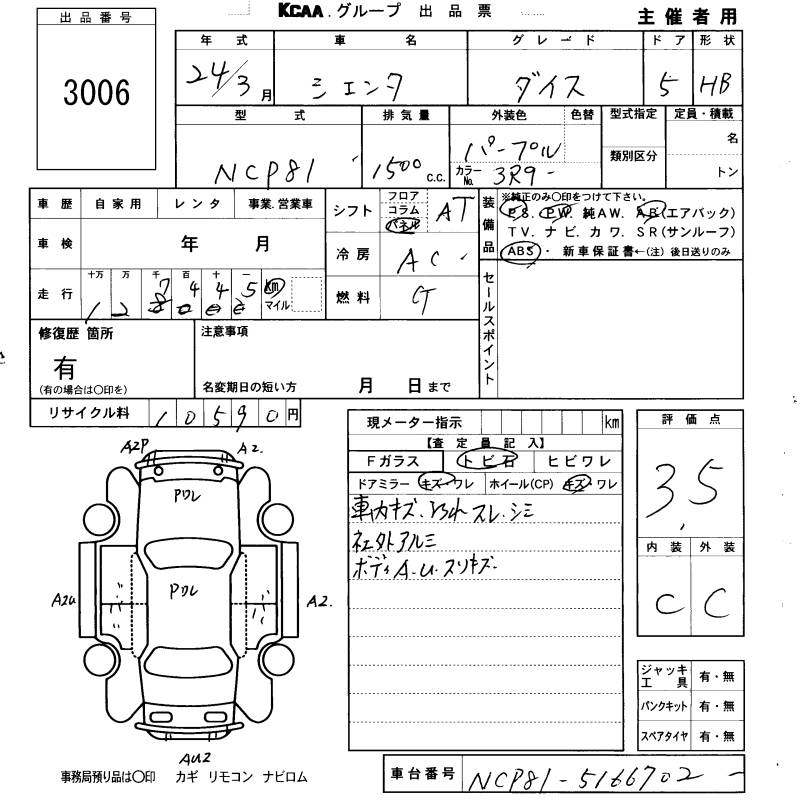 KCAA.グループ 出品票
主催者用
出品番号
3006
年式 車名 グレード ドア 形状
24/3月 シエンタ ダイス 5 HB
型式 排気量 外装色 色替 型式指定 定員・積載
NCP81 1500 c.c. パープル 類別区分 名
カラーNo. 3R9 トン
車歴 自家用 レンタ 事業.営業車
シフト フロア コラム パネル AT
装備品 ※純正のみ○印をつけて下さい。
PS. PW. 純AW. AB(エアバック)
TV. ナビ. カワ. SR(サンルーフ)
ABS・ 新車保証書←(注)後日送りのみ
車検 年 月
冷房 AC
走行 十万 万 千 百 十 一
km マイル
燃料 G
セールスポイント
修復歴 箇所
有
(有の場合は○印を)
注意事項
名変期日の短い方 月 日まで
リサイクル料 10590円
現メーター指示 km
【査定員記入】
Fガラス トビ石 ヒビワレ
ドアミラー キズ・ワレ ホイール(CP) キズ・ワレ
車内キズ.ヨゴレ スレ.シミ
社外アルミ
ボディA.U.スリキズ
評価点
3.5
内装 外装
C C
A2P A2.
PDL
PDL
A2U A2.
AU2
ジャッキ工具 有・無
パンクキット 有・無
スペアタイヤ 有・無
事務局預り品は○印 カギ リモコン ナビロム
車台番号 NCP81-5166702